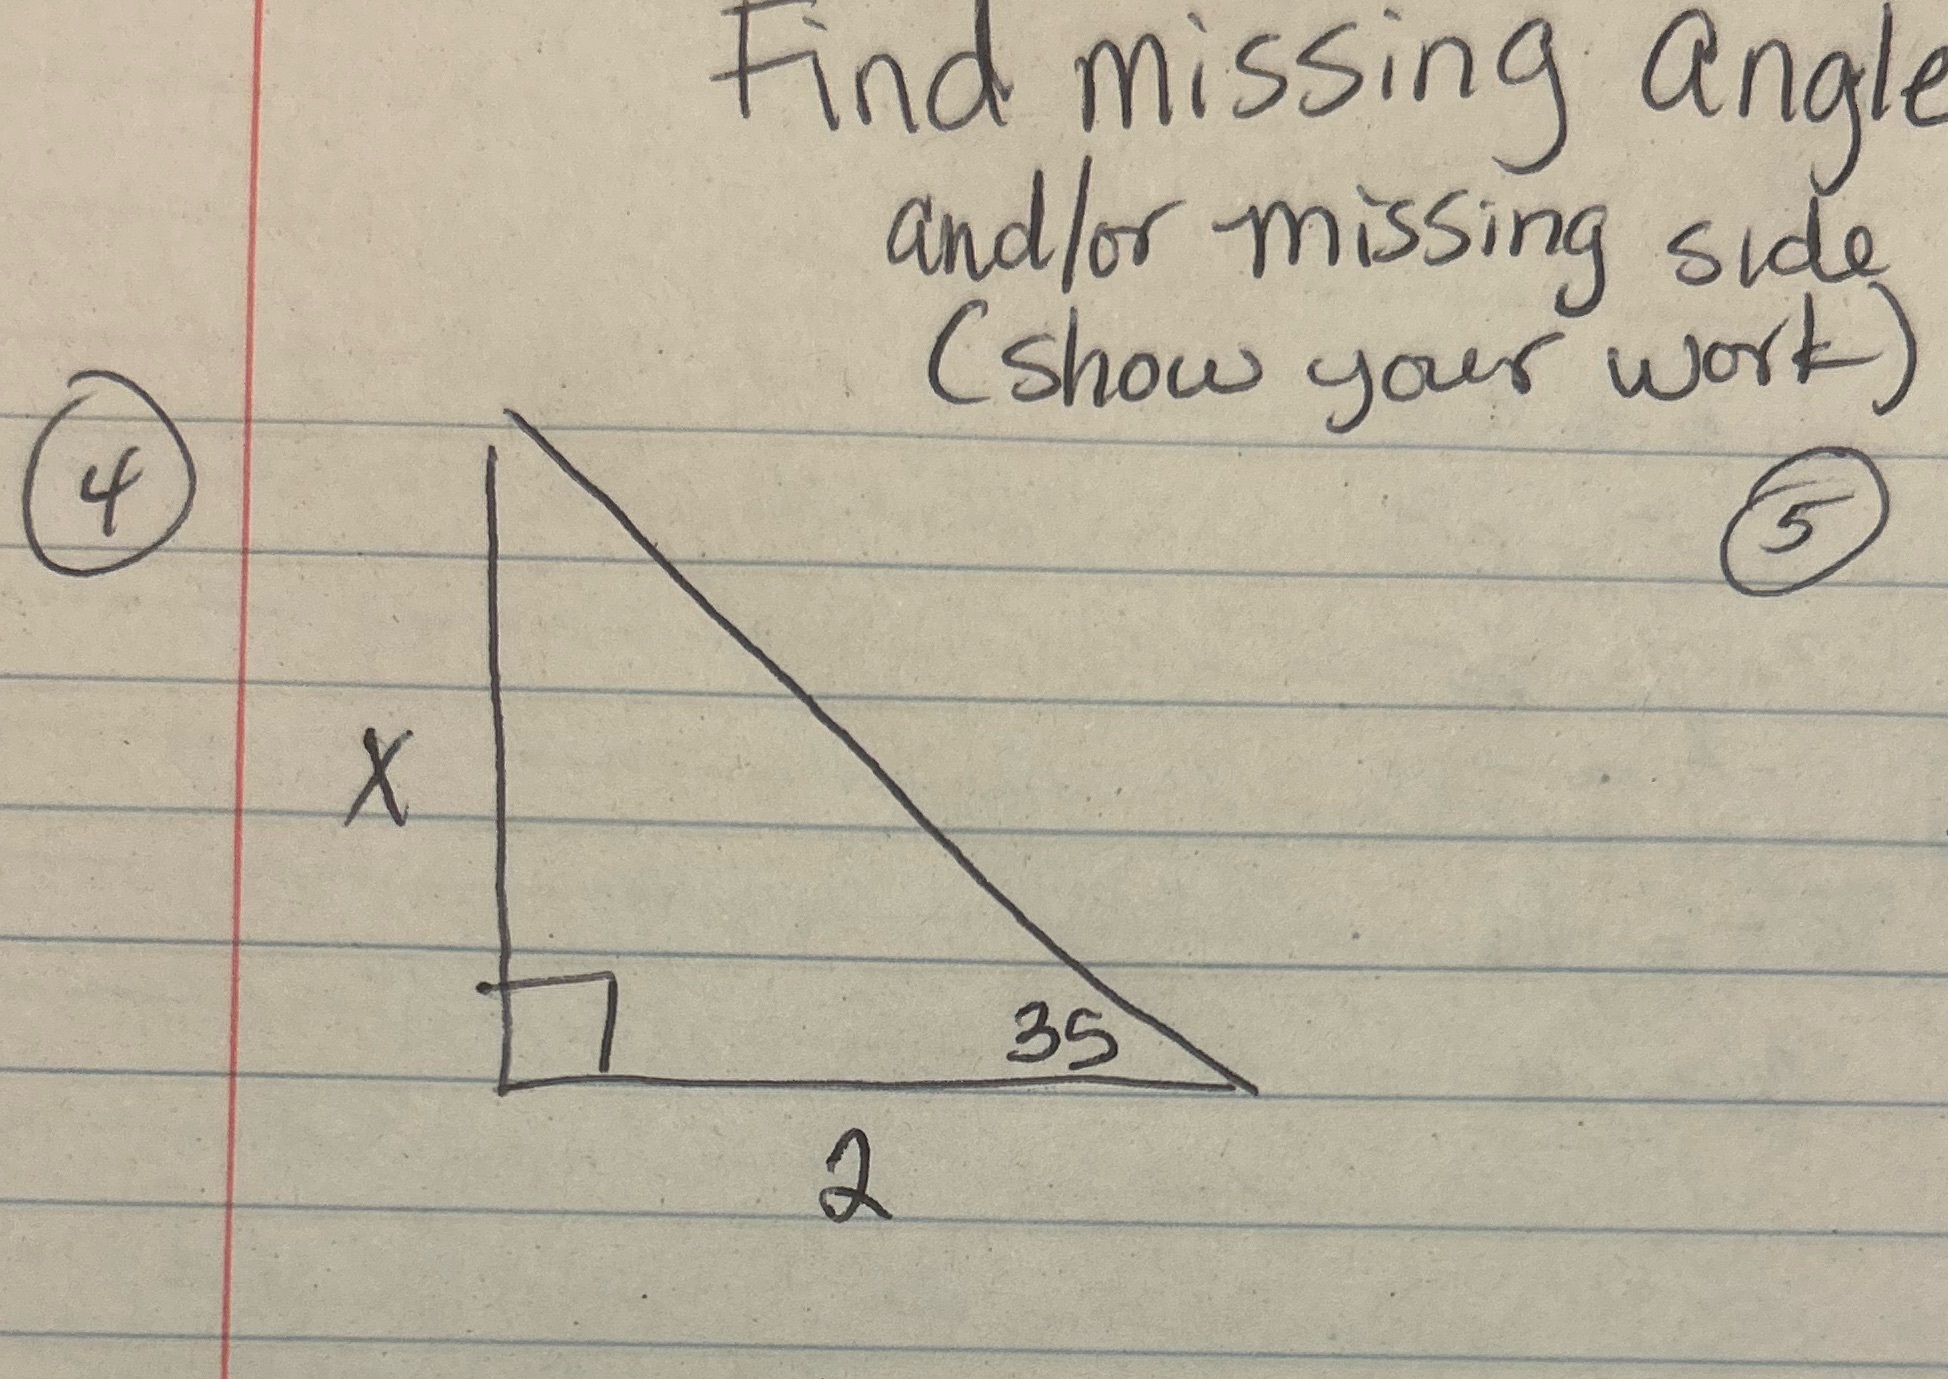 Find missing angle
and/or missing side
(show your work)
4
5
X
35
2